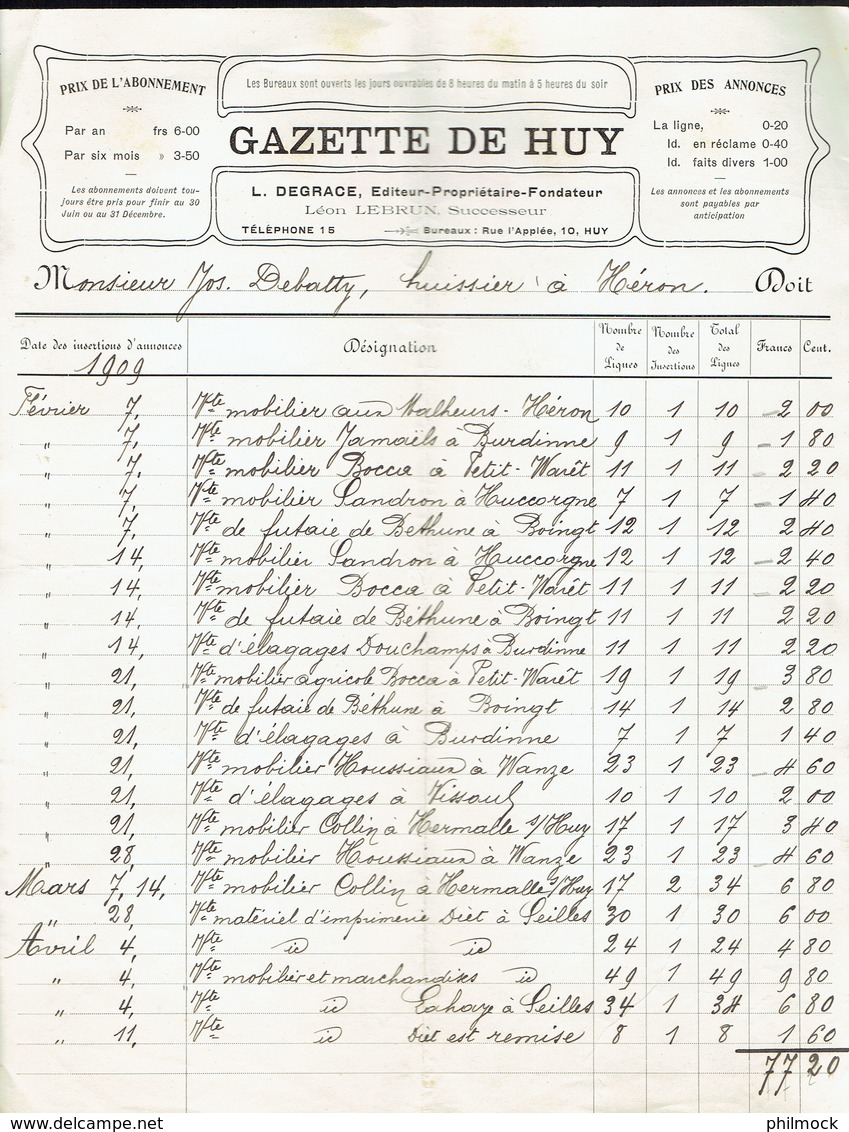 PRIX DE L'ABONNEMENT
Par an frs 6-00
Par six mois » 3-50
Les abonnements doivent tou-
jours être pris pour finir au 30
Juin ou au 31 Décembre.
Les Bureaux sont ouverts les jours ouvrables de 8 heures du matin à 5 heures du soir
GAZETTE DE HUY
L. DEGRACE, Editeur-Propriétaire-Fondateur
Léon LEBRUN, Successeur
TÉLÉPHONE 15 Bureaux : Rue l'Applée, 10, HUY
PRIX DES ANNONCES
La ligne, 0-20
Id. en réclame 0-40
Id. faits divers 1-00
Les annonces et les abonnements
sont payables par
anticipation
Monsieur Jos. Debatty, huissier à Héron. Doit
Date des insertions d'annonces Désignation Nombre de Lignes Nombre des Insertions Total des Lignes Francs Cent.
1909
Février 7, Vte mobilier aux Malheurs - Héron 10 1 10 2 00
" 7, Vte mobilier Jamaëls à Burdinne 9 1 9 1 80
" 7, Vte mobilier Bocca à Petit-Warêt 11 1 11 2 20
" 7, Vte mobilier Sandron à Huccorgne 7 1 7 1 40
" 7, Vte de futaie de Béthune à Boingt 12 1 12 2 40
" 14, Vte mobilier Sandron à Huccorgne 12 1 12 2 40
" 14, Vte mobilier Bocca à Petit-Warêt 11 1 11 2 20
" 14, Vte de futaie de Béthune à Boingt 11 1 11 2 20
" 14, Vte d'élagages Douchamps à Burdinne 11 1 11 2 20
" 21, Vte mobilier agricole Bocca à Petit-Warêt 19 1 19 3 80
" 21, Vte de futaie de Béthune à Boingt 14 1 14 2 80
" 21, Vte d'élagages à Burdinne 7 1 7 1 40
" 21, Vte mobilier Houssiaux à Wanze 23 1 23 4 60
" 21, Vte d'élagages à Vissoul 10 1 10 2 00
" 21, Vte mobilier Collin à Hermalle s/Huy 17 1 17 3 40
" 28, Vte mobilier Houssiaux à Wanze 23 1 23 4 60
Mars 7, 14, Vte mobilier Collin à Hermalle s/Huy 17 2 34 6 80
" 28, Vte matériel d'imprimerie Diet à Seilles 30 1 30 6 00
Avril 4, Vte id id 24 1 24 4 80
" 4, Vte mobilier et marchandises id 49 1 49 9 80
" 4, Vte id Lahaye à Seilles 34 1 34 6 80
" 11, Vte id Diet est remise 8 1 8 1 60
77 20
www.delcampe.net philmock